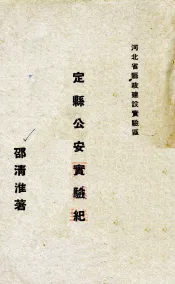 河北省縣政建設實驗區
定縣公安實驗紀
邵清淮著